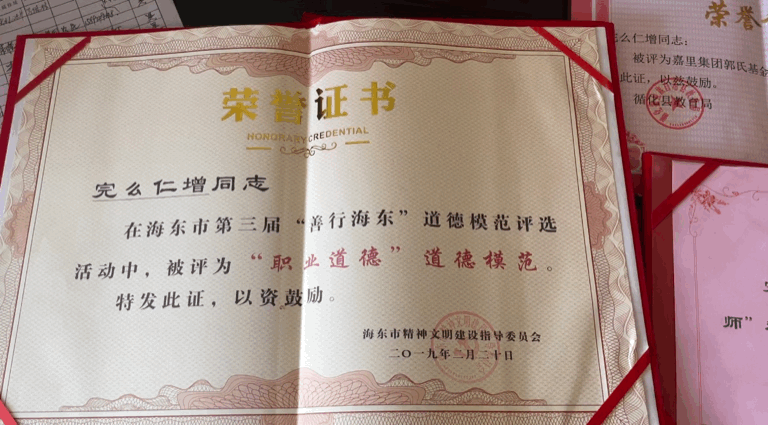 荣誉证书
HONORARY CREDENTIAL
完么仁增同志
在海东市第三届“善行海东”道德模范评选
活动中，被评为“职业道德”道德模范。
特发此证，以资鼓励。
海东市精神文明建设指导委员会
二〇一九年二月二十日
荣誉
么仁增同志：
被评为嘉里集团郭氏基金
此证，以兹鼓励。
循化县教育局
师”